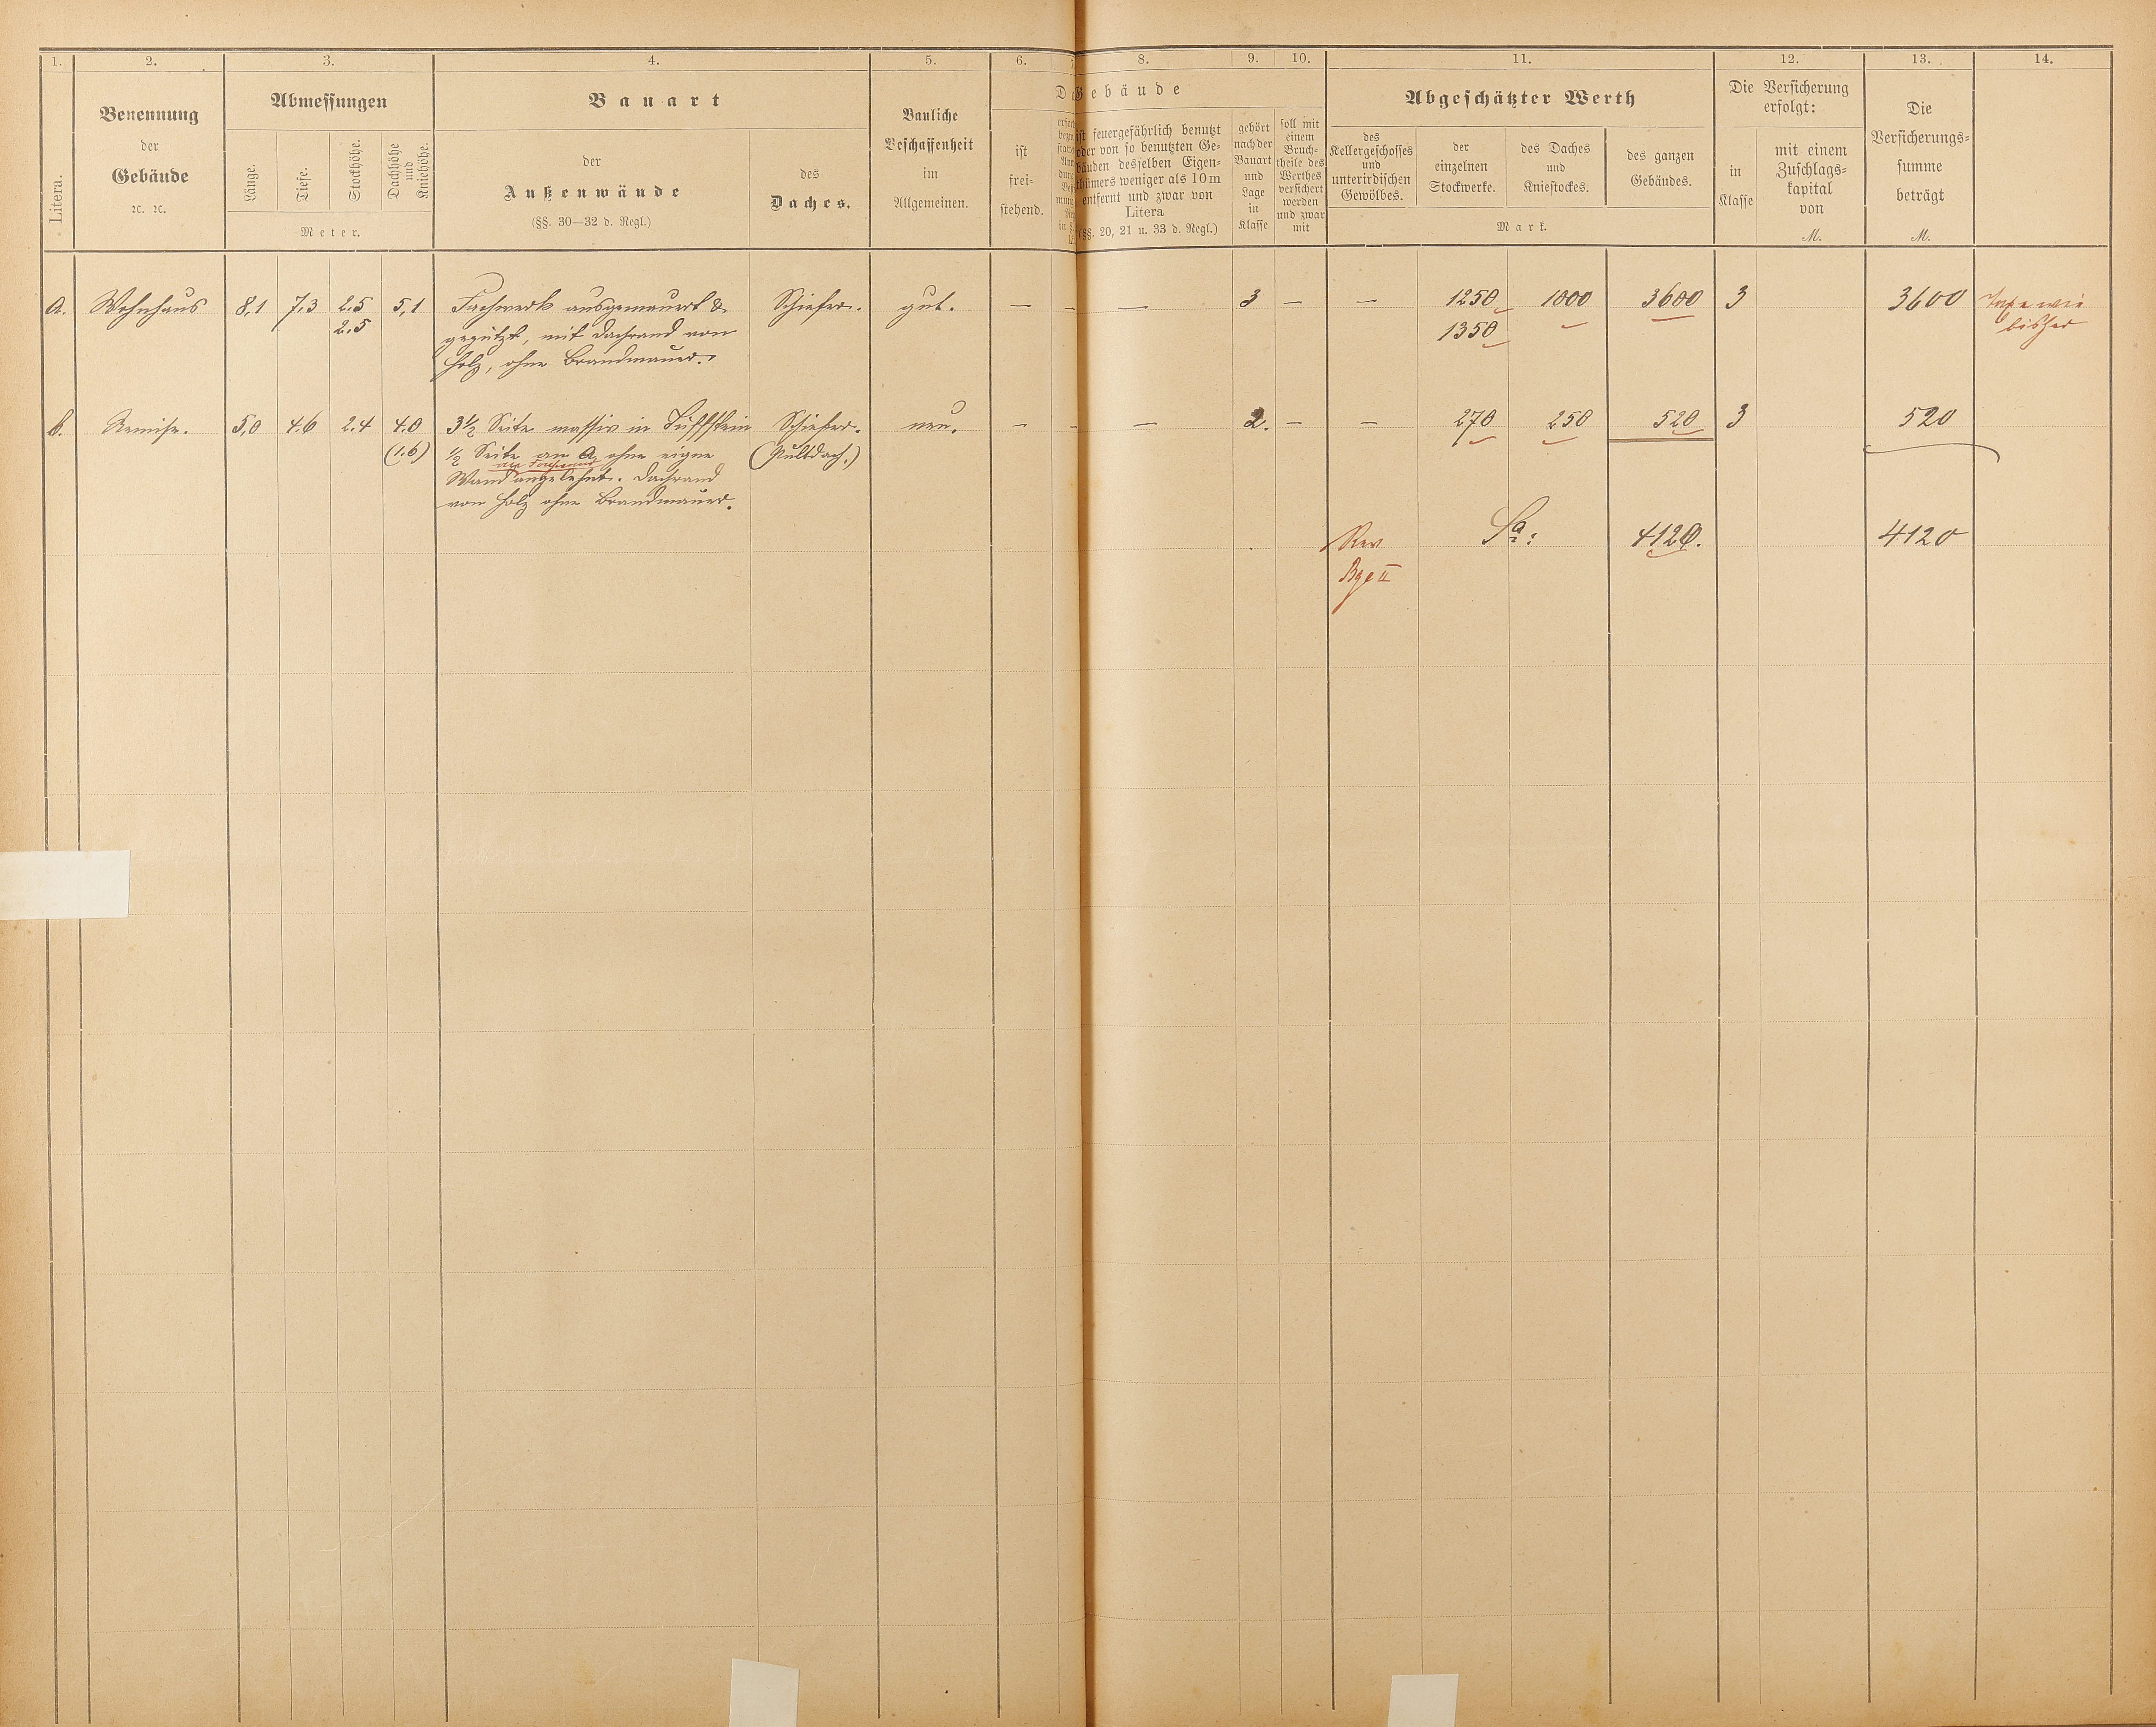 1. 2. 3. 4. 5. 6. 7. 8. 9. 10. 11. 12. 13. 14.
Litera.
Benennung
der
Gebäude
ꝛc. ꝛc.
Abmessungen
Länge.
Tiefe.
Stockhöhe.
Dachhöhe
und
Kniehöhe.
Meter.
Bauart
der
Außenwände
(§§. 30—32 d. Regl.)
des
Daches.
Bauliche
Beschaffenheit
im
Allgemeinen.
Gebäude
ist
frei-
stehend.
ist feuergefährlich benutzt
oder von so benutzten Ge-
bäuden desselben Eigen-
thümers weniger als 10 m
entfernt und zwar von
Litera
(§§. 20, 21 u. 33 d. Regl.)
gehört
nach der
Bauart
und
Lage
in
Klasse
soll mit
einem
Bruch-
theile des
Werthes
versichert
werden
und zwar
mit
Abgeschätzter Werth
des
Kellergeschosses
und
unterirdischen
Gewölbes.
der
einzelnen
Stockwerke.
des Daches
und
Kniestockes.
des ganzen
Gebäudes.
Mark.
Die Versicherung
erfolgt:
in
Klasse
mit einem
Zuschlags-
kapital
von
M.
Die
Versicherungs-
summe
beträgt
M.
a. Wohnhaus 8,1 7,3 2.5 5,1 Fachwerk ausgemauert & Schiefer. gut. — — — 3 — — 1250 1000 3600 3 3600 Taxe wie
2.5 geputzt, mit Dachrand von 1350 bisher
Holz, ohne Brandmauer.
b. Remise. 5,0 4.6 2.4 4.0 3½ Seite massiv in Tuffstein Schiefer. neu. — — — 2. — — 270 250 520 3 520
(1.6) ½ Seite an a, ohne eigne (Pultdach.)
Wand angelehnt. Dachrand
von Holz ohne Brandmauer.
Rev Sa: 4120. 4120